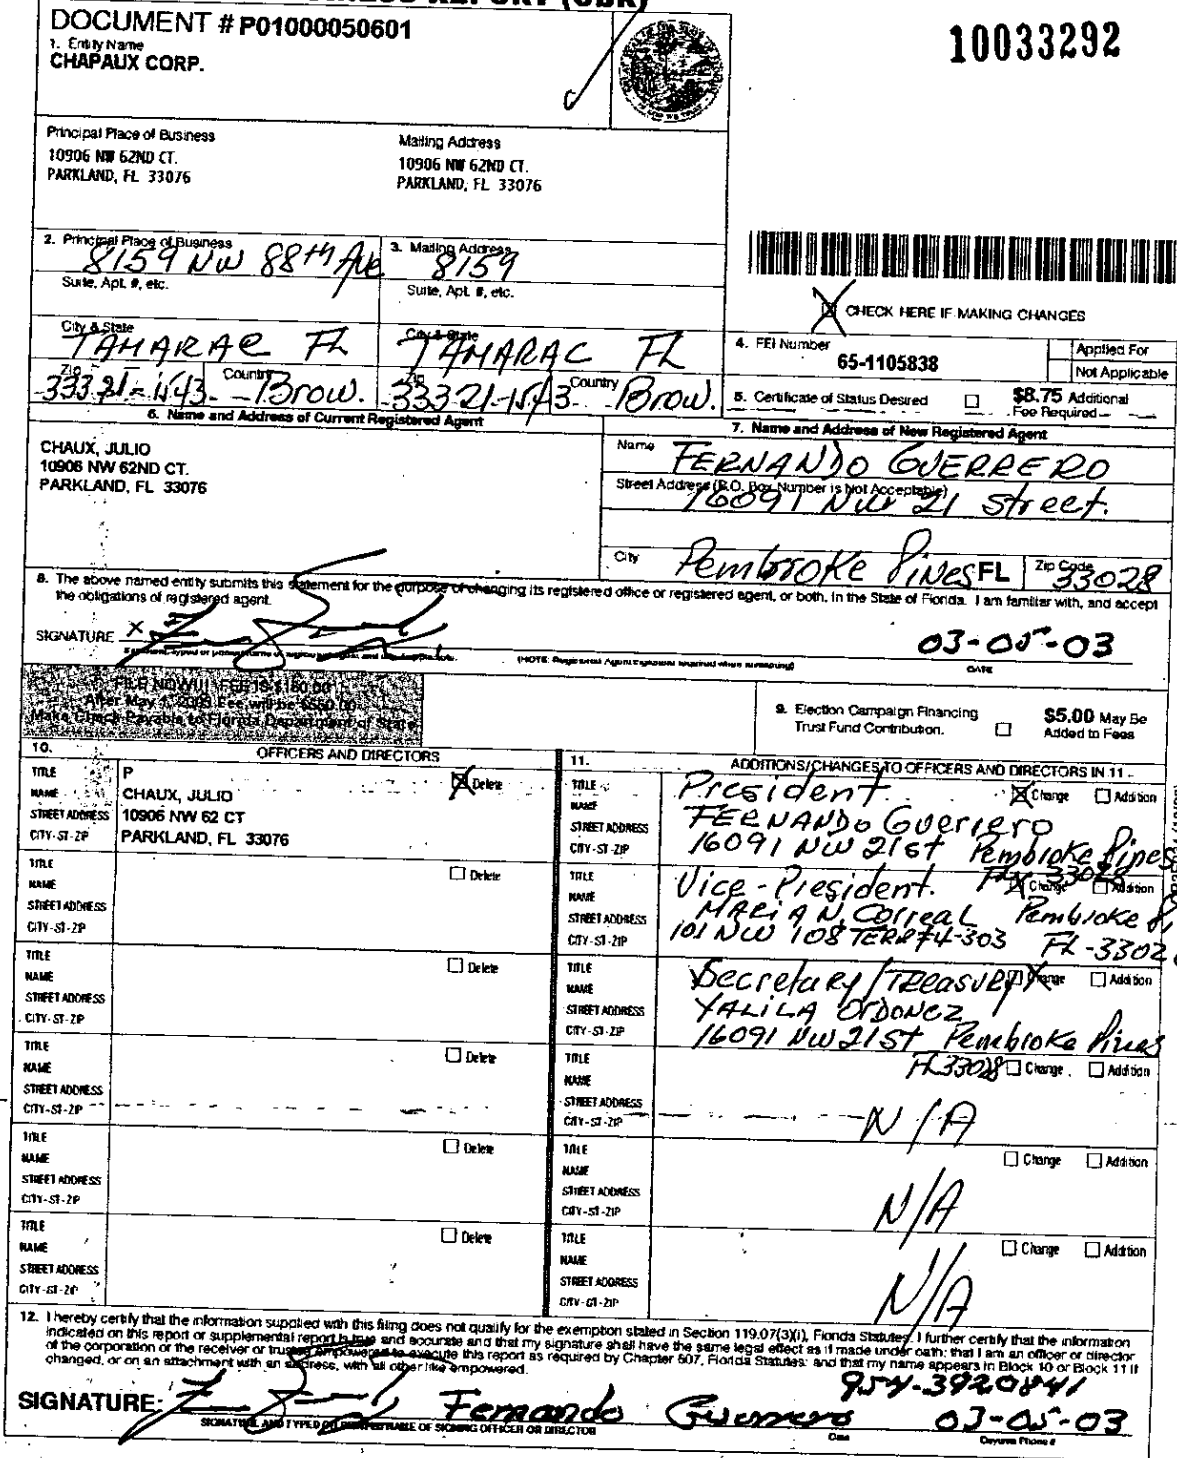 DOCUMENT # P01000050601
1. Entity Name
CHAPAUX CORP.
10033292
Principal Place of Business
10906 NW 62ND CT.
PARKLAND, FL 33076
Mailing Address
10906 NW 62ND CT.
PARKLAND, FL 33076
2. Principal Place of Business
8159 NW 88TH Ave
3. Mailing Address
8159
Suite, Apt. #, etc.
Suite, Apt. #, etc.
City & State
TAMARAC FL
City & State
TAMARAC FL
Zip
33321-1543
Country
Brow.
Zip
33321-1543
Country
Brow.
CHECK HERE IF MAKING CHANGES
4. FEI Number
65-1105838
Applied For
Not Applicable
5. Certificate of Status Desired
$8.75 Additional
Fee Required
6. Name and Address of Current Registered Agent
CHAUX, JULIO
10906 NW 62ND CT.
PARKLAND, FL 33076
7. Name and Address of New Registered Agent
Name
FERNANDO GUERRERO
Street Address (P.O. Box Number is Not Acceptable)
16091 NW 21 Street.
City
Pembroke Pines FL
Zip Code
33028
8. The above named entity submits this statement for the purpose of changing its registered office or registered agent, or both, in the State of Florida. I am familiar with, and accept
the obligations of registered agent.
SIGNATURE X
(NOTE: Registered Agent signature required when reinstating)
03-05-03
DATE
FILE NOW!!! FEE IS $150.00
After May 1, 2003 Fee will be $550.00
Make Check Payable to Florida Department of State
9. Election Campaign Financing
Trust Fund Contribution.
$5.00 May Be
Added to Fees
10. OFFICERS AND DIRECTORS
TITLE P Delete
NAME CHAUX, JULIO
STREET ADDRESS 10906 NW 62 CT
CITY-ST-ZIP PARKLAND, FL 33076
TITLE Delete
NAME
STREET ADDRESS
CITY-ST-ZIP
TITLE Delete
NAME
STREET ADDRESS
CITY-ST-ZIP
TITLE Delete
NAME
STREET ADDRESS
CITY-ST-ZIP
TITLE Delete
NAME
STREET ADDRESS
CITY-ST-ZIP
TITLE Delete
NAME
STREET ADDRESS
CITY-ST-ZIP
11. ADDITIONS/CHANGES TO OFFICERS AND DIRECTORS IN 11
TITLE President Change Addition
NAME FERNANDO Guerrero
STREET ADDRESS 16091 NW 21st Pembroke Pines
CITY-ST-ZIP FL 33028
TITLE Vice-President. Change Addition
NAME MARIA N. Correal Pembroke
STREET ADDRESS 101 NW 108 TERR #4-303 FL-3302
CITY-ST-ZIP
TITLE Secretary/Treasury Change Addition
NAME YALILA ORDONEZ
STREET ADDRESS 16091 NW 21st Pembroke Pines
CITY-ST-ZIP FL 33028
TITLE Change Addition
NAME
STREET ADDRESS
CITY-ST-ZIP N/A
TITLE Change Addition
NAME
STREET ADDRESS
CITY-ST-ZIP N/A
TITLE Change Addition
NAME
STREET ADDRESS
CITY-ST-ZIP N/A
12. I hereby certify that the information supplied with this filing does not qualify for the exemption stated in Section 119.07(3)(i), Florida Statutes. I further certify that the information
indicated on this report or supplemental report is true and accurate and that my signature shall have the same legal effect as if made under oath; that I am an officer or director
of the corporation or the receiver or trustee empowered to execute this report as required by Chapter 607, Florida Statutes; and that my name appears in Block 10 or Block 11 if
changed, or on an attachment with an address, with all other like empowered.
954-3920841
SIGNATURE: Fernando Guerrero 03-05-03
SIGNATURE AND TYPED OR PRINTED NAME OF SIGNING OFFICER OR DIRECTOR
Date
Daytime Phone #